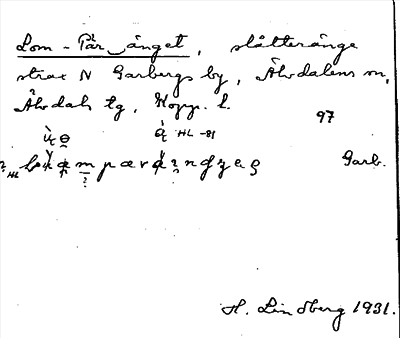 Lom-Pär_änget, slåtteränge
strax N Garbergs by, Älvdalens sn,
Älvdals tg, Kopp. l.
97
HL -81
HL
Garb.
H. Lindberg 1931.